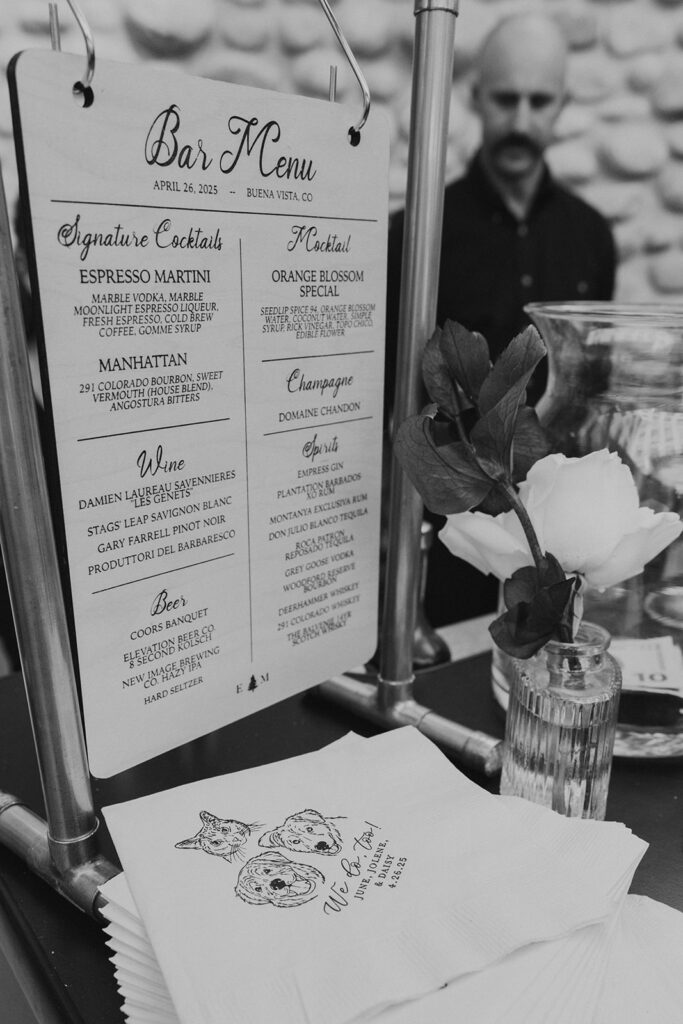 Bar Menu
APRIL 26, 2025 -- BUENA VISTA, CO
Signature Cocktails
ESPRESSO MARTINI
MARBLE VODKA, MARBLE
MOONLIGHT ESPRESSO LIQUEUR,
FRESH ESPRESSO, COLD BREW
COFFEE, GOMME SYRUP
MANHATTAN
291 COLORADO BOURBON, SWEET
VERMOUTH (HOUSE BLEND),
ANGOSTURA BITTERS
Wine
DAMIEN LAUREAU SAVENNIERES
"LES GENETS"
STAGS' LEAP SAVIGNON BLANC
GARY FARRELL PINOT NOIR
PRODUTTORI DEL BARBARESCO
Beer
COORS BANQUET
ELEVATION BEER CO.
8 SECOND KOLSCH
NEW IMAGE BREWING
CO. HAZY IPA
HARD SELTZER
Mocktail
ORANGE BLOSSOM
SPECIAL
SEEDLIP SPICE 94, ORANGE BLOSSOM
WATER, COCONUT WATER, SIMPLE
SYRUP, RICE VINEGAR, TOPO CHICO,
EDIBLE FLOWER
Champagne
DOMAINE CHANDON
Spirits
EMPRESS GIN
PLANTATION BARBADOS
XO RUM
MONTANYA EXCLUSIVA RUM
DON JULIO BLANCO TEQUILA
ROCA PATRON
REPOSADO TEQUILA
GREY GOOSE VODKA
WOODFORD RESERVE
BOURBON
DEERHAMMER WHISKEY
291 COLORADO WHISKEY
THE BALVENIE 14YR
SCOTCH WHISKY
E M
10
We Do, too!
JUNE, JOLENE,
& DAISY
4.26.25